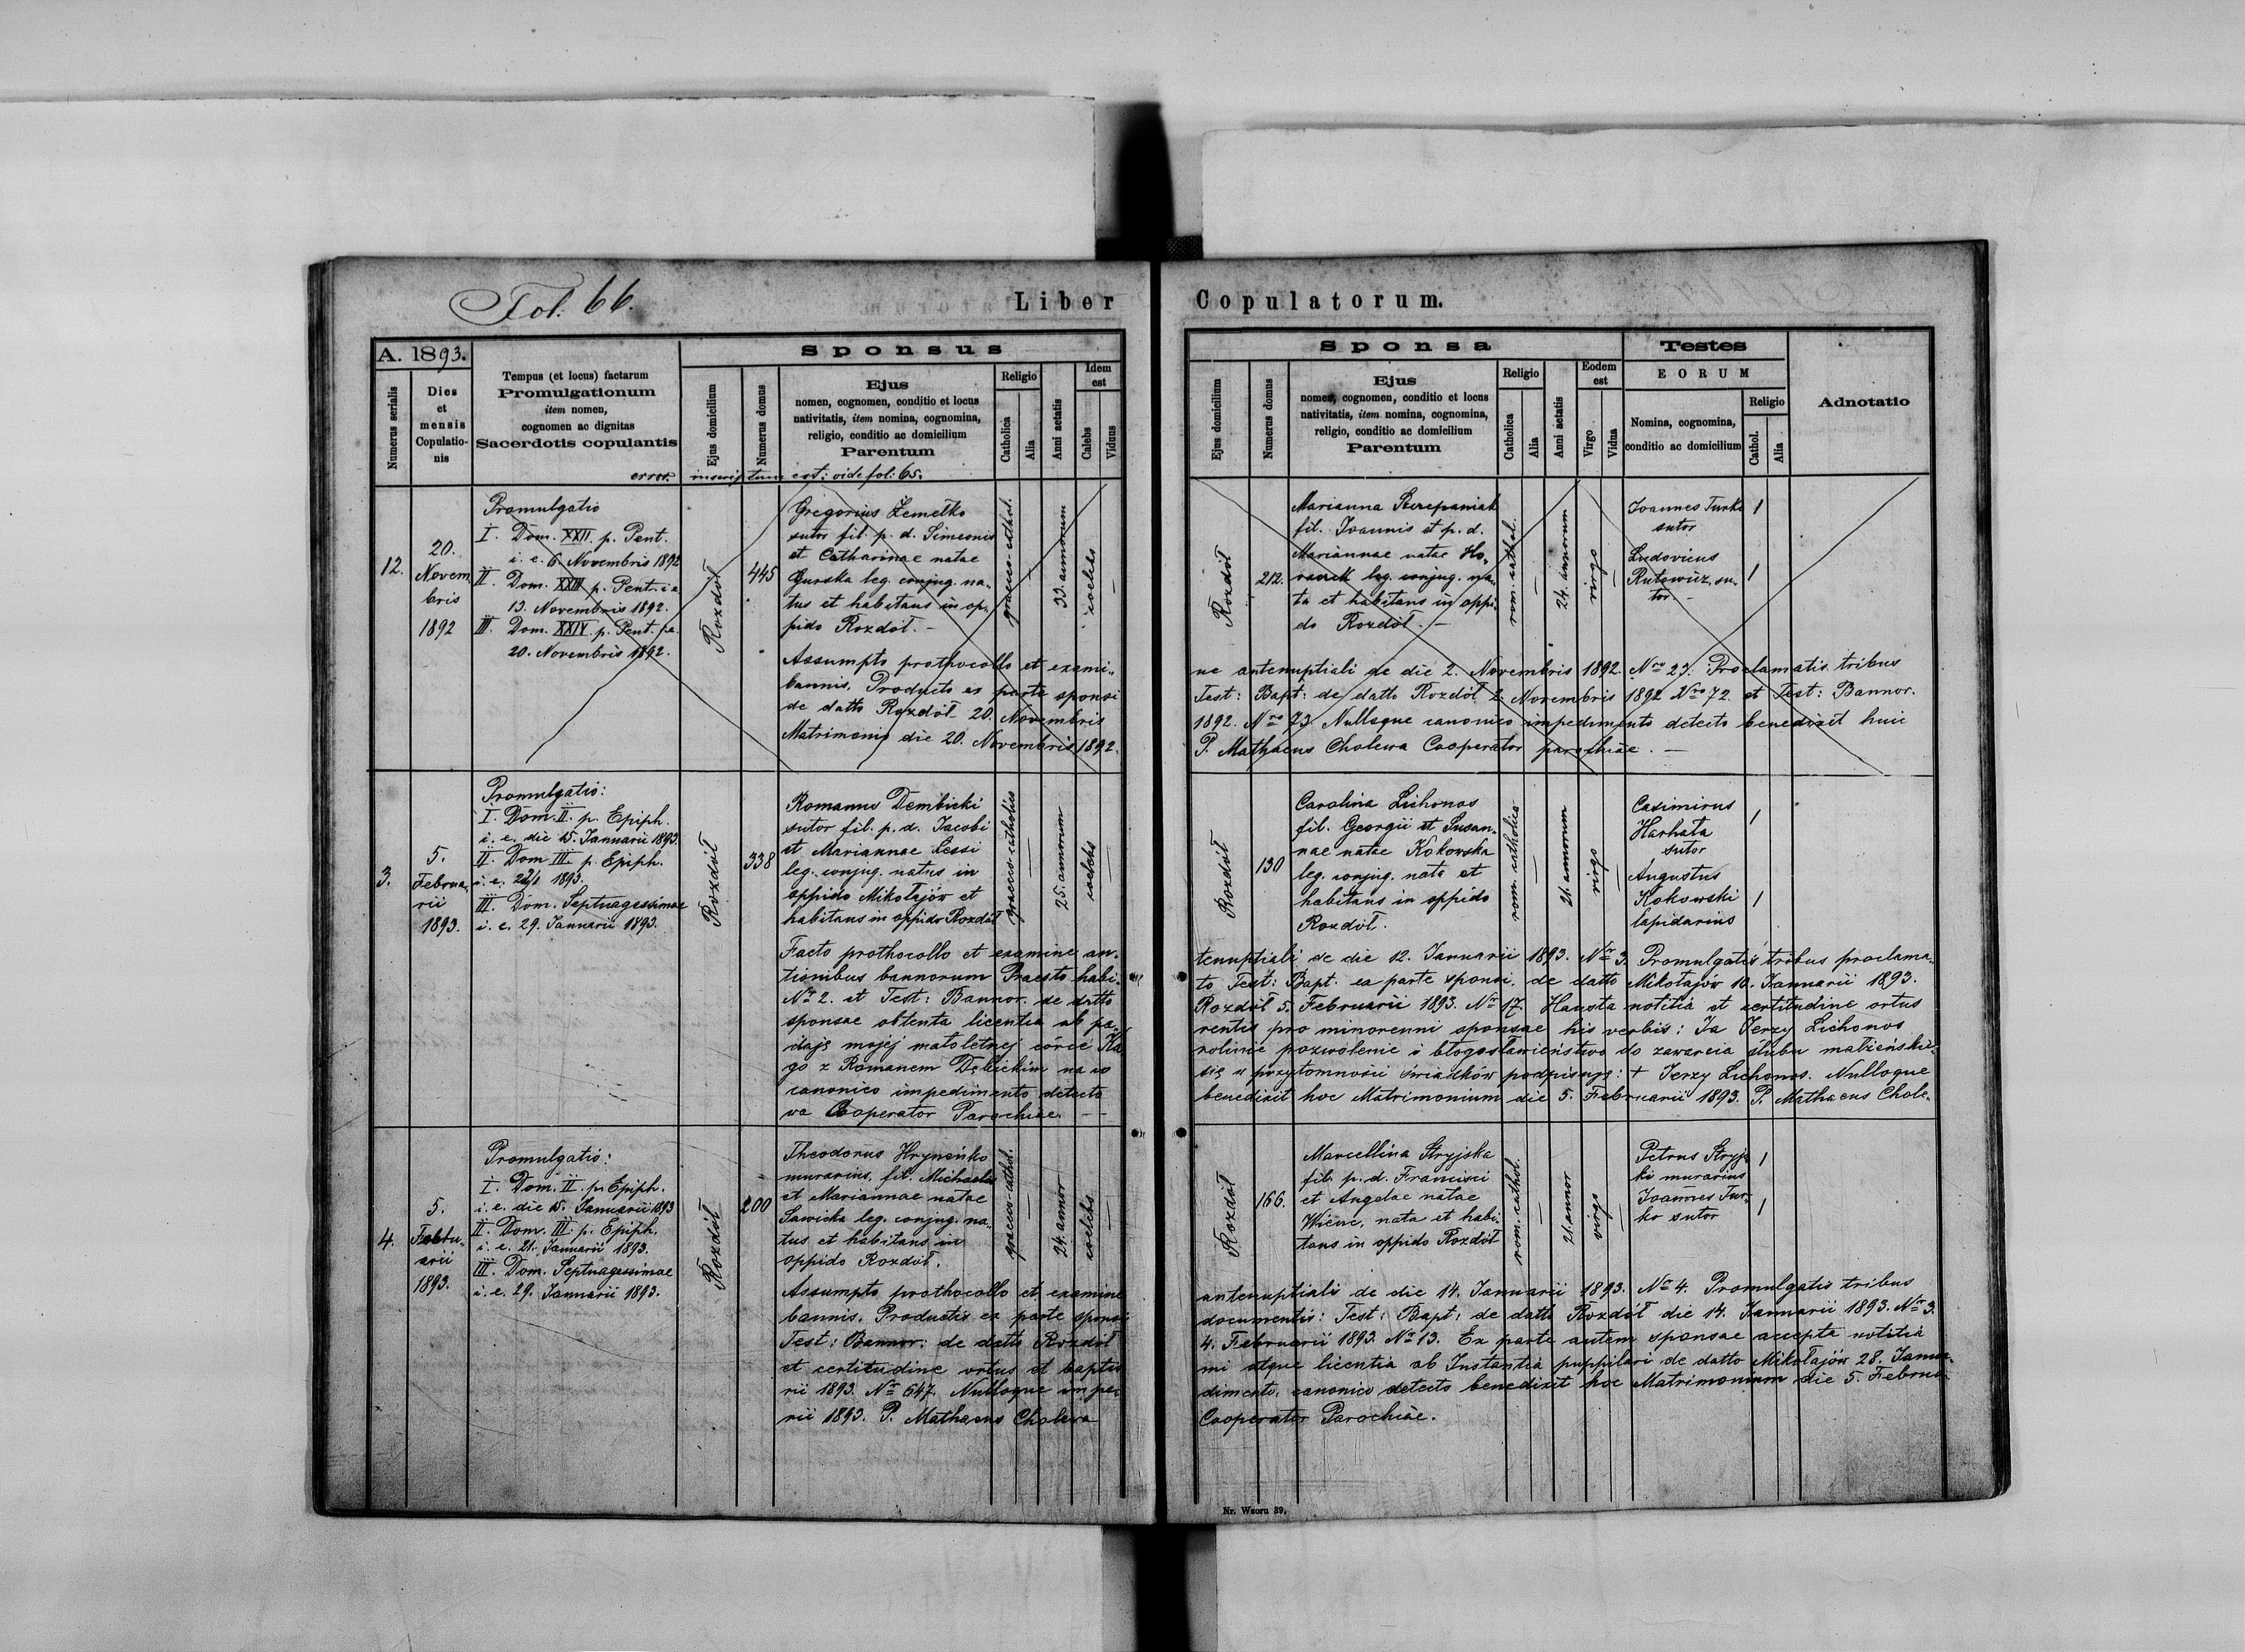 Fol. 66.
Liber Copulatorum.
A. 1893.
Numerus serialis
Dies
et
mensis
Copulatio-
nis
Tempus (et locus) factarum
Promulgationum
item nomen,
cognomen ac dignitas
Sacerdotis copulantis
Sponsus
Ejus domicilium
Numerus domus
Ejus
nomen, cognomen, conditio et locus
nativitatis, item nomina, cognomina,
religio, conditio ac domicilium
Parentum
Religio
Catholica
Alia
Anni aetatis
Idem
est
Calebs
Viduus
Sponsa
Ejus domicilium
Numerus domus
Ejus
nomen, cognomen, conditio et locus
nativitatis, item nomina, cognomina,
religio, conditio ac domicilium
Parentum
Religio
Catholica
Alia
Anni aetatis
Eodem
est
Virgo
Vidua
Testes
EORUM
Nomina, cognomina,
conditio ac domicilium
Religio
Cathol.
Alia
Adnotatio
error. inscriptum est: vide fol: 65.
12.
20.
Novem
bris
1892
Promulgatio
I. Dom. XXII. p. Pent.
i. e. 6. Novembris 1892
II. Dom. XXIII p. Pent. i e
13. Novembris 1892.
III. Dom. XXIV. p. Pent. i.e.
20. Novembris 1892.
Rozdół
445
Gregorius Zemełko
sutor fil. p. d. Simeonis
et Catharinae natae
Gurska leg. conjug. na-
tus et habitans in op-
pido Rozdół. -
graeco-cathol.
33. annorum
coelebs
Rozdół
212.
Marianna Szczepaniak
fil. Joannis et p. d.
Mariannae natae Ho-
leg. conjug. na-
ta et habitans in oppi-
do Rozdół. -
rom. cathol.
24. annorum
virgo
Joannes Turko
sutor
Ludovicus
Rutowicz, su-
tor. -
Assumpto prothocollo et exami- ne antenuptiali de die 2. Novembris 1892. Nro 27. Proclamatis tribus
bannis. Producto ex parte sponsi Test: Bapt: de datto Rozdół 2. Novembris 1892 Nro 72. et Test: Bannor.
de datto Rozdół 20. Novembris 1892. Nro 73. Nulloque canonico impedimento detecto benedixit huic
Matrimonio die 20. Novembris 1892. P. Mathaeus Cholewa Cooperator parochiae. -
3.
5.
Februa-
rii
1893.
Promulgatio:
I. Dom. II. p. Epiph.
i. e. die 15. Januarii 1893.
II. Dom III. p. Epiph.
i. e. 22/1 1893.
III. Dom. Septuagessimae
i. e. 29. Januarii 1893.
Rozdół
338
Romanus Dembicki
sutor fil. p. d. Jacobi
et Mariannae Lessi
leg. conjug. natus in
oppido Mikołajów et
habitans in oppido Rozdół
graeco-catholic
25. annorum
coelebs
Rozdół
130
Carolina Lichonos
fil. Georgii et Susan-
nae natae Kokowska
leg. conjug. nata et
habitans in oppido
Rozdół.
rom. catholica
21. annorum
virgo
Casimirus
Harhata
sutor
Augustus
Kokowski
lapidarius
Facto prothocollo et examine an- tenuptiali de die 12. Januarii 1893. Nro 3. Promulgatis tribus proclama-
tionibus bannorum Praesto habi- to Test: Bapt. ex parte sponsi, de datto Mikołajów 10. Januarii 1893.
Nro 2. et Test: Bannor. de datto Rozdół 5. Februarii 1893. Nro 17. Hausta notitia et certitudine ortus
sponsae obtenta licentia ab pa- rentis pro minorenni sponsae his verbis: Ja Jerzy Lichonos
daję mojej małoletnej córce Ka- rolinie pozwolenie i błogosławieństwo do zawarcia ślubu małżeńskie-
go z Romanem Dębickim na co się w przytomności świadków podpisuję: + Jerzy Lichonos. Nulloque
canonico impedimento detecto benedixit hoc Matrimonium die 5. Februarii 1893. P. Mathaeus Chole-
wa Cooperator Parochiae. -
4.
5.
Febru-
arii
1893.
Promulgatio:
I. Dom. II. p. Epiph.
i. e. die 15. Januarii 1893
II. Dom. III. p. Epiph.
i. e. 21. Januarii 1893.
III. Dom. Septuagessimae
i. e. 29. Januarii 1893.
Rozdół
200
Theodorus Hryneńko
murarius, fil. Michaelis
et Mariannae natae
Sawicka leg. conjug. na-
tus et habitans in
oppido Rozdół.
graeco-cathol.
24. annor
coelebs
Rozdół
166.
Marcellina Stryjska
fil. p. d. Francisci
et Angelae natae
nata et habi-
tans in oppido Rozdół
rom. cathol.
21. annor
virgo
Petrus Stryj-
ki murarius
Joannes Tur-
ko sutor
Assumpto prothocollo et examine antenuptiali de die 14. Januarii 1893. Nro 4. Promulgatis tribus
bannis. Productis ex parte sponsi documentis: Test: Bapt: de datto Rozdół die 14. Januarii 1893. Nro 3.
Test: Bannor: de datto Rozdół 4. Februarii 1893. Nro 13. Ex parte autem sponsae accepta notitia
et certitudine ortus et baptis mi atque licentia ab Instantia puppilari de datto Mikołajów 28. Janua-
rii 1893. Nro 647. Nulloque impe- dimento canonico detecto benedixit hoc Matrimonium die 5. Februa-
rii 1893. P. Mathaeus Cholewa Cooperator Parochiae.
Nr. Wzoru 39.